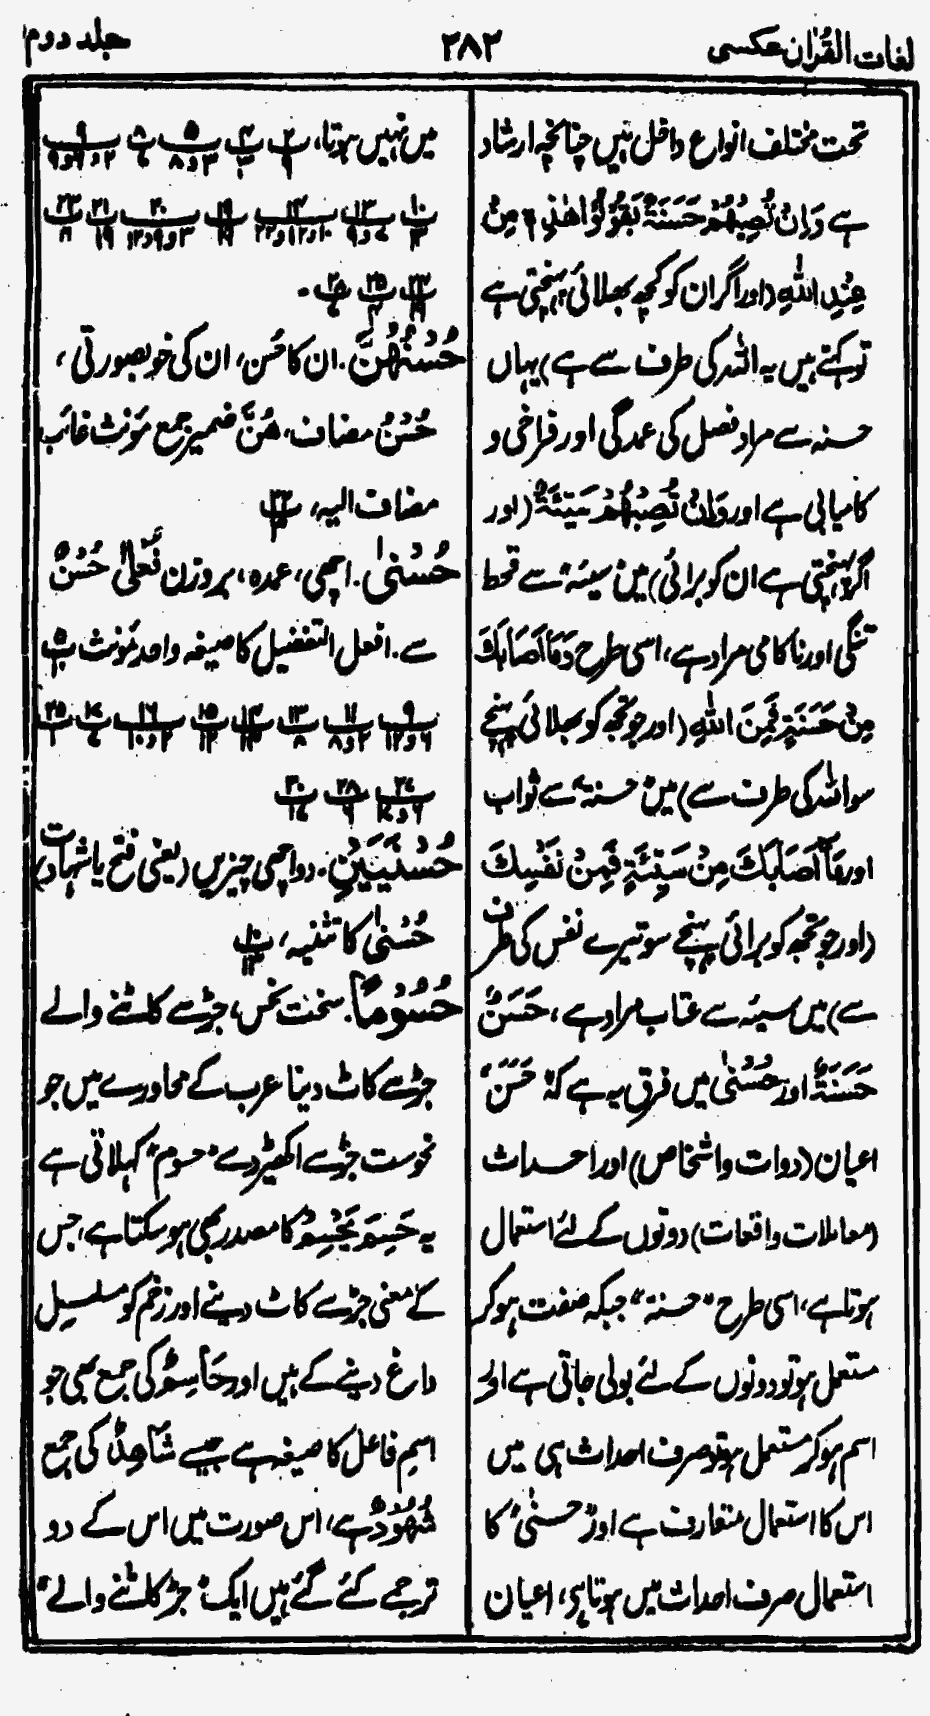 لغات القرآن عکسی
۲۸۲
جلد دوم
تحت مختلف انواع داخل ہیں چنانچہ ارشاد
ہے وَاِنْ تُصِبْهُمْ حَسَنَةٌ یَّقُوْلُوْا هٰذِهٖ مِنْ
عِنْدِ اللّٰهِ (اور اگر ان کو کچھ بھلائی پہنچتی ہے
تو کہتے ہیں یہ اللہ کی طرف سے ہے) یہاں
حسنہ سے مراد فصل کی عمدگی اور فراخی و
کامیابی ہے اور وَاِنْ تُصِبْهُمْ سَیِّئَةٌ (اور
اگر پہنچتی ہے ان کو برائی) میں سیئہ سے قحط
تنگی اور ناکامی مراد ہے، اسی طرح مَآ اَصَابَكَ
مِنْ حَسَنَةٍ فَمِنَ اللّٰهِ (اور جو تجھ کو بھلائی پہنچے
سو اللہ کی طرف سے) میں "حسنة" سے ثواب
اور مَآ اَصَابَكَ مِنْ سَیِّئَةٍ فَمِنْ نَفْسِكَ
(اور جو تجھ کو برائی پہنچے سو تیرے نفس کی طرف
سے) میں سیئہ سے عتاب مراد ہے، حَسَنٌ
حَسَنَةٌ اور حُسْنٰی میں فرق یہ ہے کہ "حَسَن"
اعیان (ذوات و اشخاص) اور احداث
(معاملات و اقعات) دونوں کے لئے استعمال
ہوتا ہے، اسی طرح "حسنة" جبکہ صفت ہو کر
مستعمل ہو تو دونوں کے لئے بولی جاتی ہے اور
اسم ہو کر مستعمل ہو تو صرف احداث ہی میں
اس کا استعمال متعارف ہے اور "حسنٰی" کا
استعمال صرف احداث میں ہوتا ہے، اعیان
میں نہیں ہوتا،
حُسْنُهُنَّ۔ ان کا حسن، ان کی خوبصورتی،
حُسْنُ مضاف، هُنَّ ضمیر جمع مؤنث غائب
مضاف الیہ،
حُسْنٰی۔ اچھی، عمدہ، بروزن فُعْلٰی حُسْنٌ
سے۔ افعل التفضیل کا صیغہ واحد مؤنث
حُسْنَیَیْنِ۔ دو اچھی چیزیں (یعنی فتح یا شہادت)
حُسْنٰی کا تثنیہ،
حُسُوْمًا۔ سخت نحس، جڑ سے کاٹنے والے
جڑ سے کاٹ دینا عرب کے محاورے میں جو
نحوست جڑ سے اکھیڑ دے "حسوم" کہلاتی ہے
یہ حَسِمَ یَحْسِمُ کا مصدر بھی ہو سکتا ہے، جس
کے معنی جڑ سے کاٹ دینے اور زخم کو مسلسل
داغ دینے کے ہیں اور حَاسِمٌ کی جمع بھی جو
اسم فاعل کا صیغہ ہے جیسے شَاهِدٌ کی جمع
شُهُوْدٌ ہے، اس صورت میں اس کے دو
ترجمے کئے گئے ہیں ایک "جڑ کاٹنے والے"